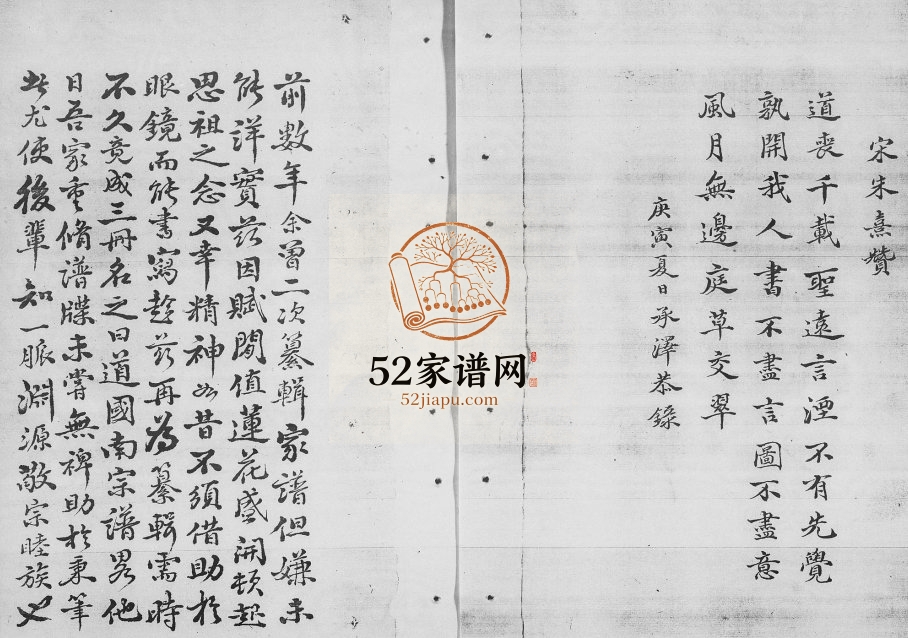 宋朱熹贊
道喪千載聖遠言湮不有先覺
孰開我人書不盡言圖不盡意
風月無邊庭草交翠
庚寅夏日承澤恭錄
前數年余曾二次纂輯家譜但嫌未
能詳實茲因賦閒值蓮花盛開頓起
思祖之念又幸精神如昔不須借助於
眼鏡而能書寫趁茲再為纂輯需時
不久竟成三冊名之曰道國南宗譜畧他
日吾家重修譜牒未嘗無裨助於秉筆
此尤使後輩知一脈淵源敬宗睦族也
52家谱网
52jiapu.com